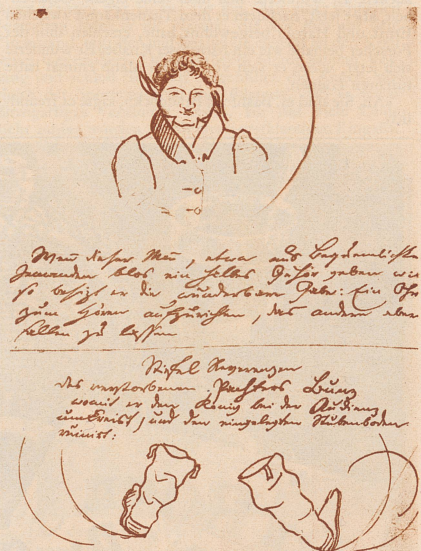 Wenn dieser Mann, etwa aus Bequemlichkeit
Jemanden blos ein halbes Gehör geben will
so besizt er die wunderbare Gabe: Ein Ohr
zum Hören aufzurichten, das andere aber
fallen zu lassen
Stiefel Reverenzen
des verstorbenen Pachters Bunz
womit er den König bei der Audienz
umkreist, und den eingelegten Stubenboden
ruinirt: